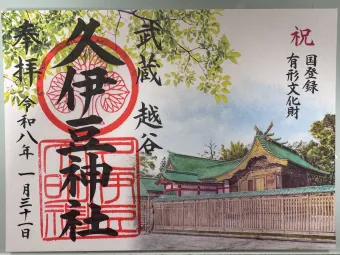 祝
国登録
有形文化財
武蔵 越谷
久伊豆神社
奉拝
令和八年 一月三十一日